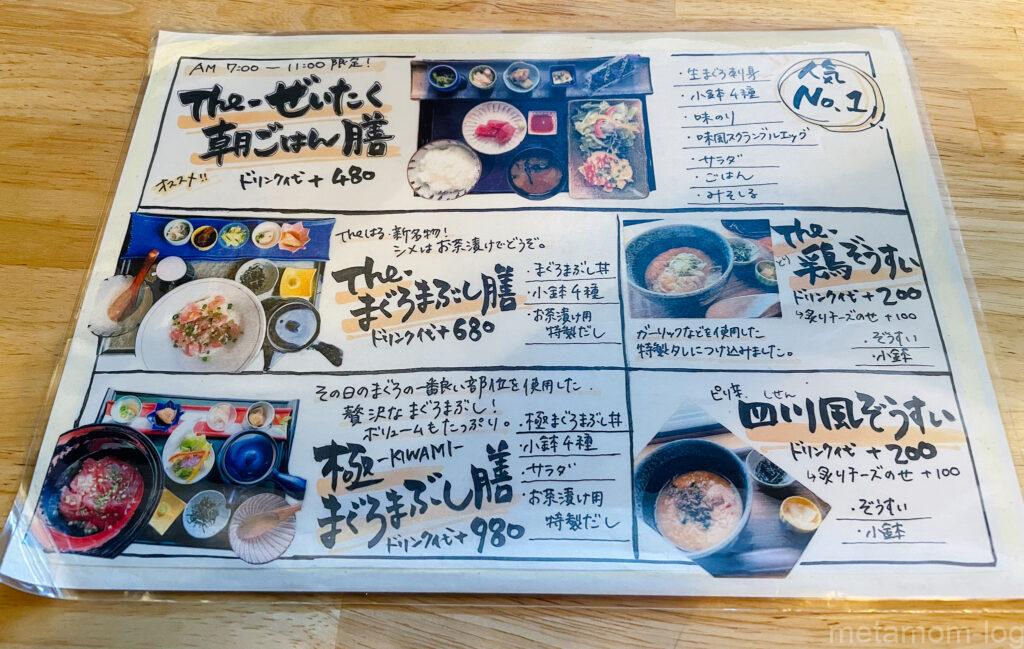 AM 7:00 — 11:00 限定!
The-ぜいたく
朝ごはん膳
オススメ!! ドリンク代+480
・生まぐろ刺身
・小鉢4種
・味のり
・味風スクランブルエッグ
・サラダ
・ごはん
・みそしる
人気
No.1
Theはる・新名物!
シメはお茶漬けでどうぞ。
The-
まぐろまぶし膳
ドリンク代+680
・まぐろまぶし丼
・小鉢4種
・お茶漬け用
特製だし
The-
とり
鶏ぞうすい
ドリンク代+200
↳炙りチーズのせ+100
ガーリックなどを使用した
特製タレにつけ込みました。
・ぞうすい
・小鉢
その日のまぐろの一番良い部位を使用した
贅沢なまぐろまぶし!
ボリュームもたっぷり。
極-KIWAMI-
まぐろまぶし膳
ドリンク代+980
・極まぐろまぶし丼
・小鉢4種
・サラダ
・お茶漬け用
特製だし
ピリ辛 しせん
四川風ぞうすい
ドリンク代+200
↳炙りチーズのせ+100
・ぞうすい
・小鉢
metamom log